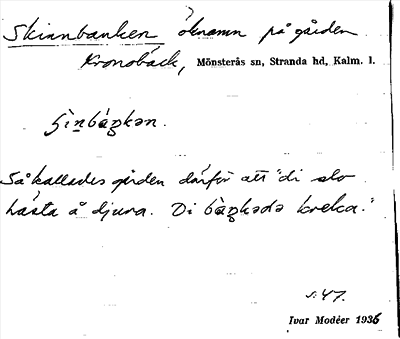 Skinnbanken öknamn på gården
Kronobäck, Mönsterås sn, Stranda hd, Kalm. l.
Så kallades gården därför att "di slo
hästa å djura. Di
s. 47.
Ivar Modéer 1936